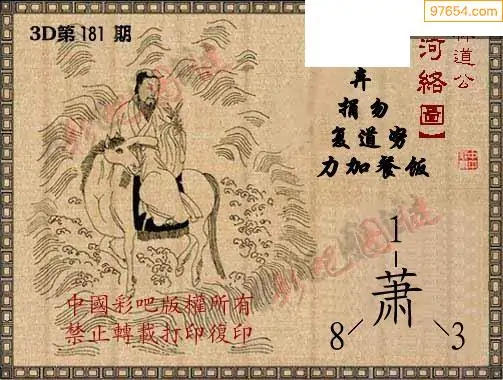 97654.com
3D第 181 期
河絡圖】
道公
弃
捐勿
复道努
力加餐饭
1
萧
8
3
中國彩吧版權所有
禁止轉載打印復印